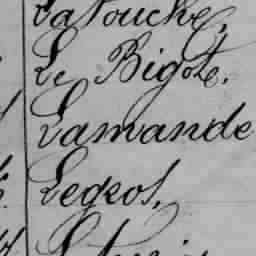 LaTouche,
Le Bigot.
Lamande
Legeos,